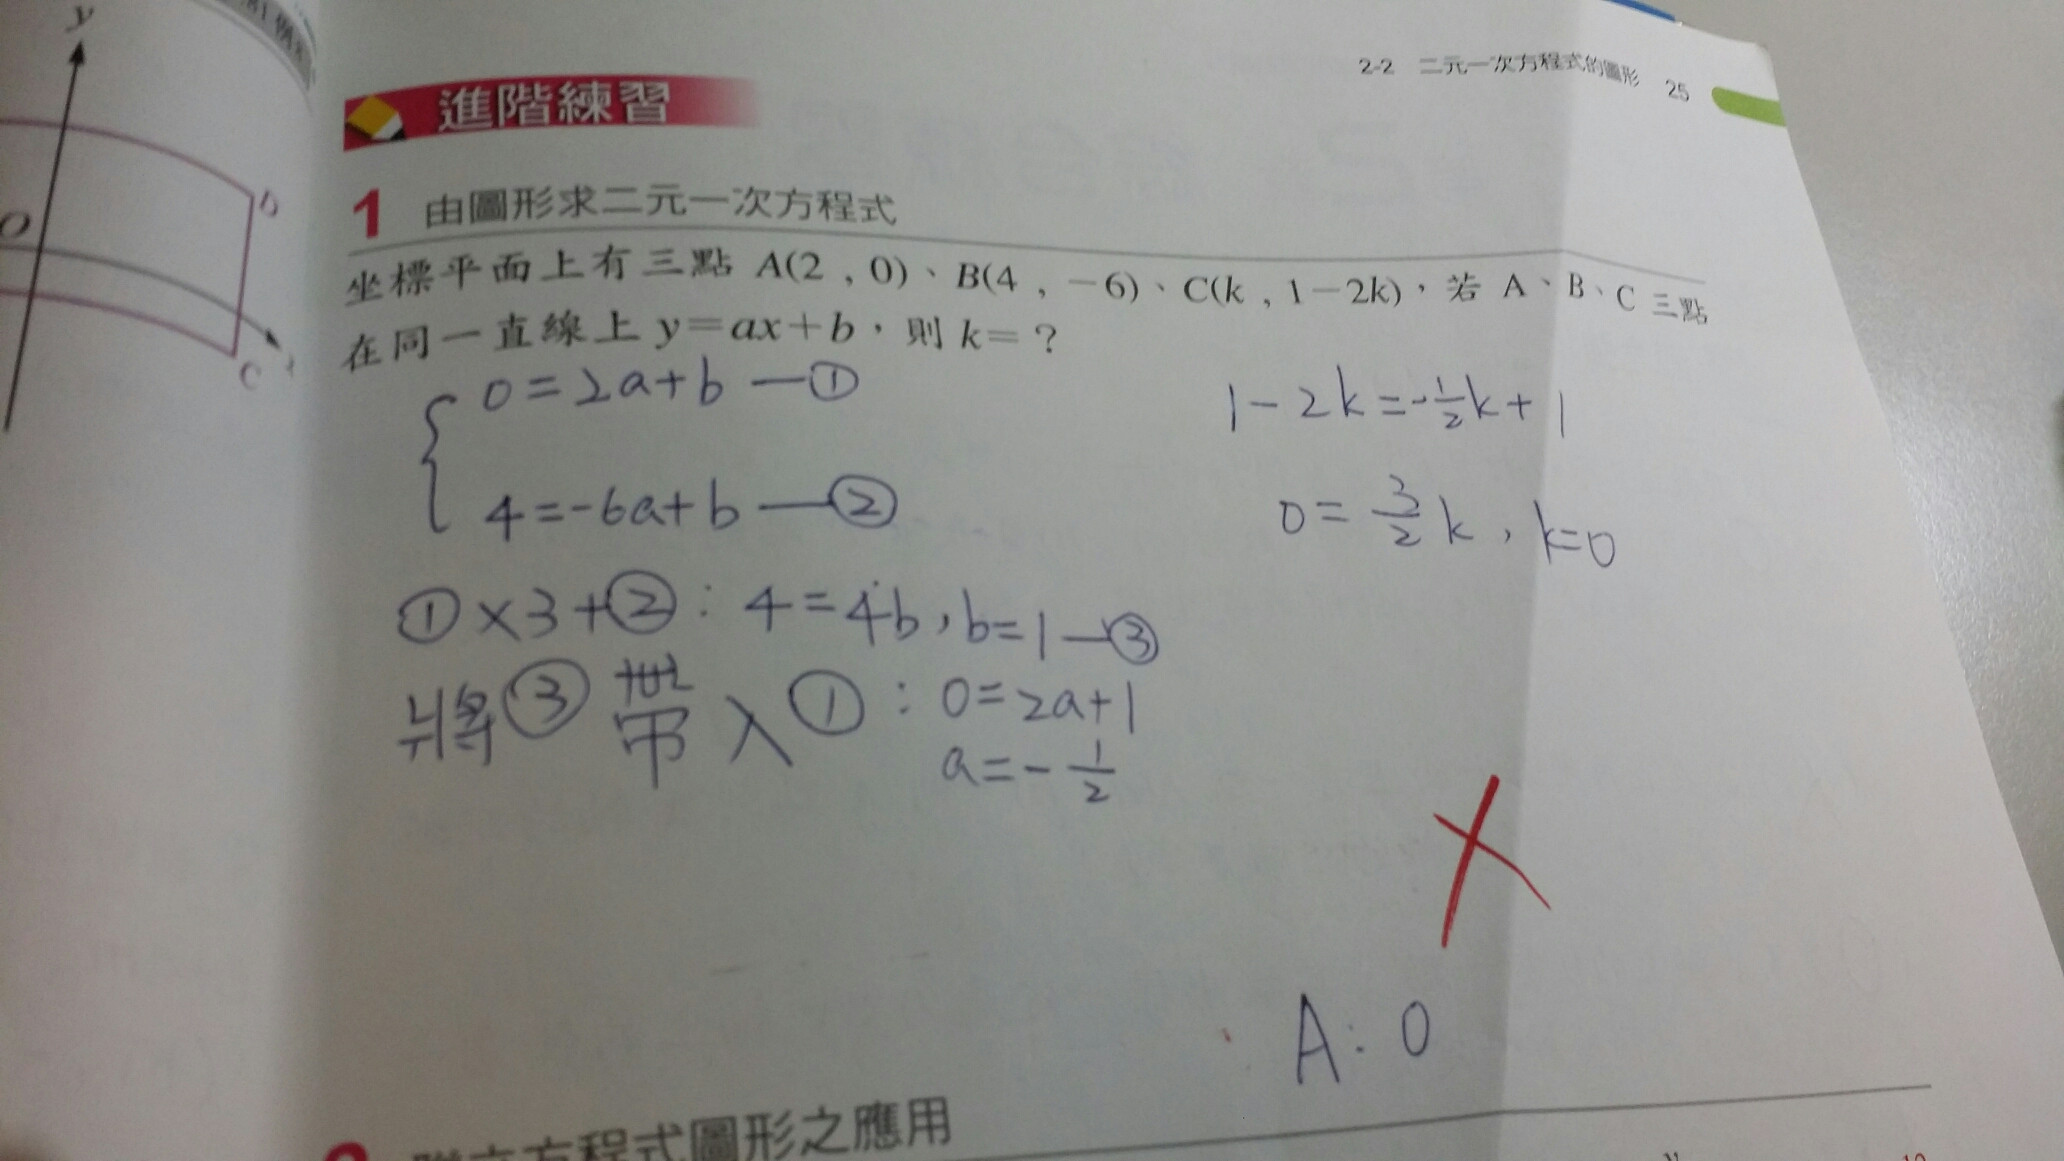 2-2 二元一次方程式的圖形 25
y
O
D
C
進階練習
1 由圖形求二元一次方程式
坐標平面上有三點 A(2 , 0)、B(4 , -6)、C(k , 1-2k),若 A、B、C 三點
在同一直線上 y=ax+b,則 k=?
0=2a+b —①
4=-6a+b —②
①×3+②:4=4b,b=1—③
將③帶入①:0=2a+1
a=-1/2
1-2k=-1/2k+1
0=3/2k,k=0
A:0
方程式圖形之應用